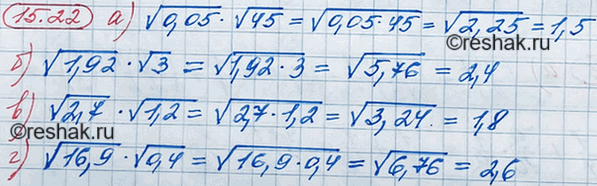 15.22 а) √0,05 · √45 = √0,05 · 45 = √2,25 = 1,5
б) √1,92 · √3 = √1,92 · 3 = √5,76 = 2,4
©reshak.ru
в) √2,7 · √1,2 = √2,7 · 1,2 = √3,24 = 1,8
©reshak.ru
г) √16,9 · √0,4 = √16,9 · 0,4 = √6,76 = 2,6